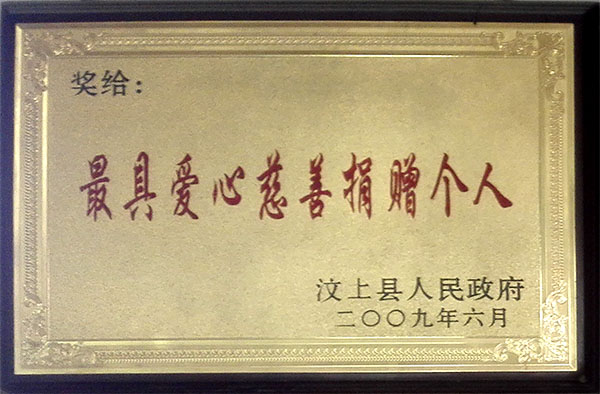 奖给：
最具爱心慈善捐赠个人
汶上县人民政府
二〇〇九年六月